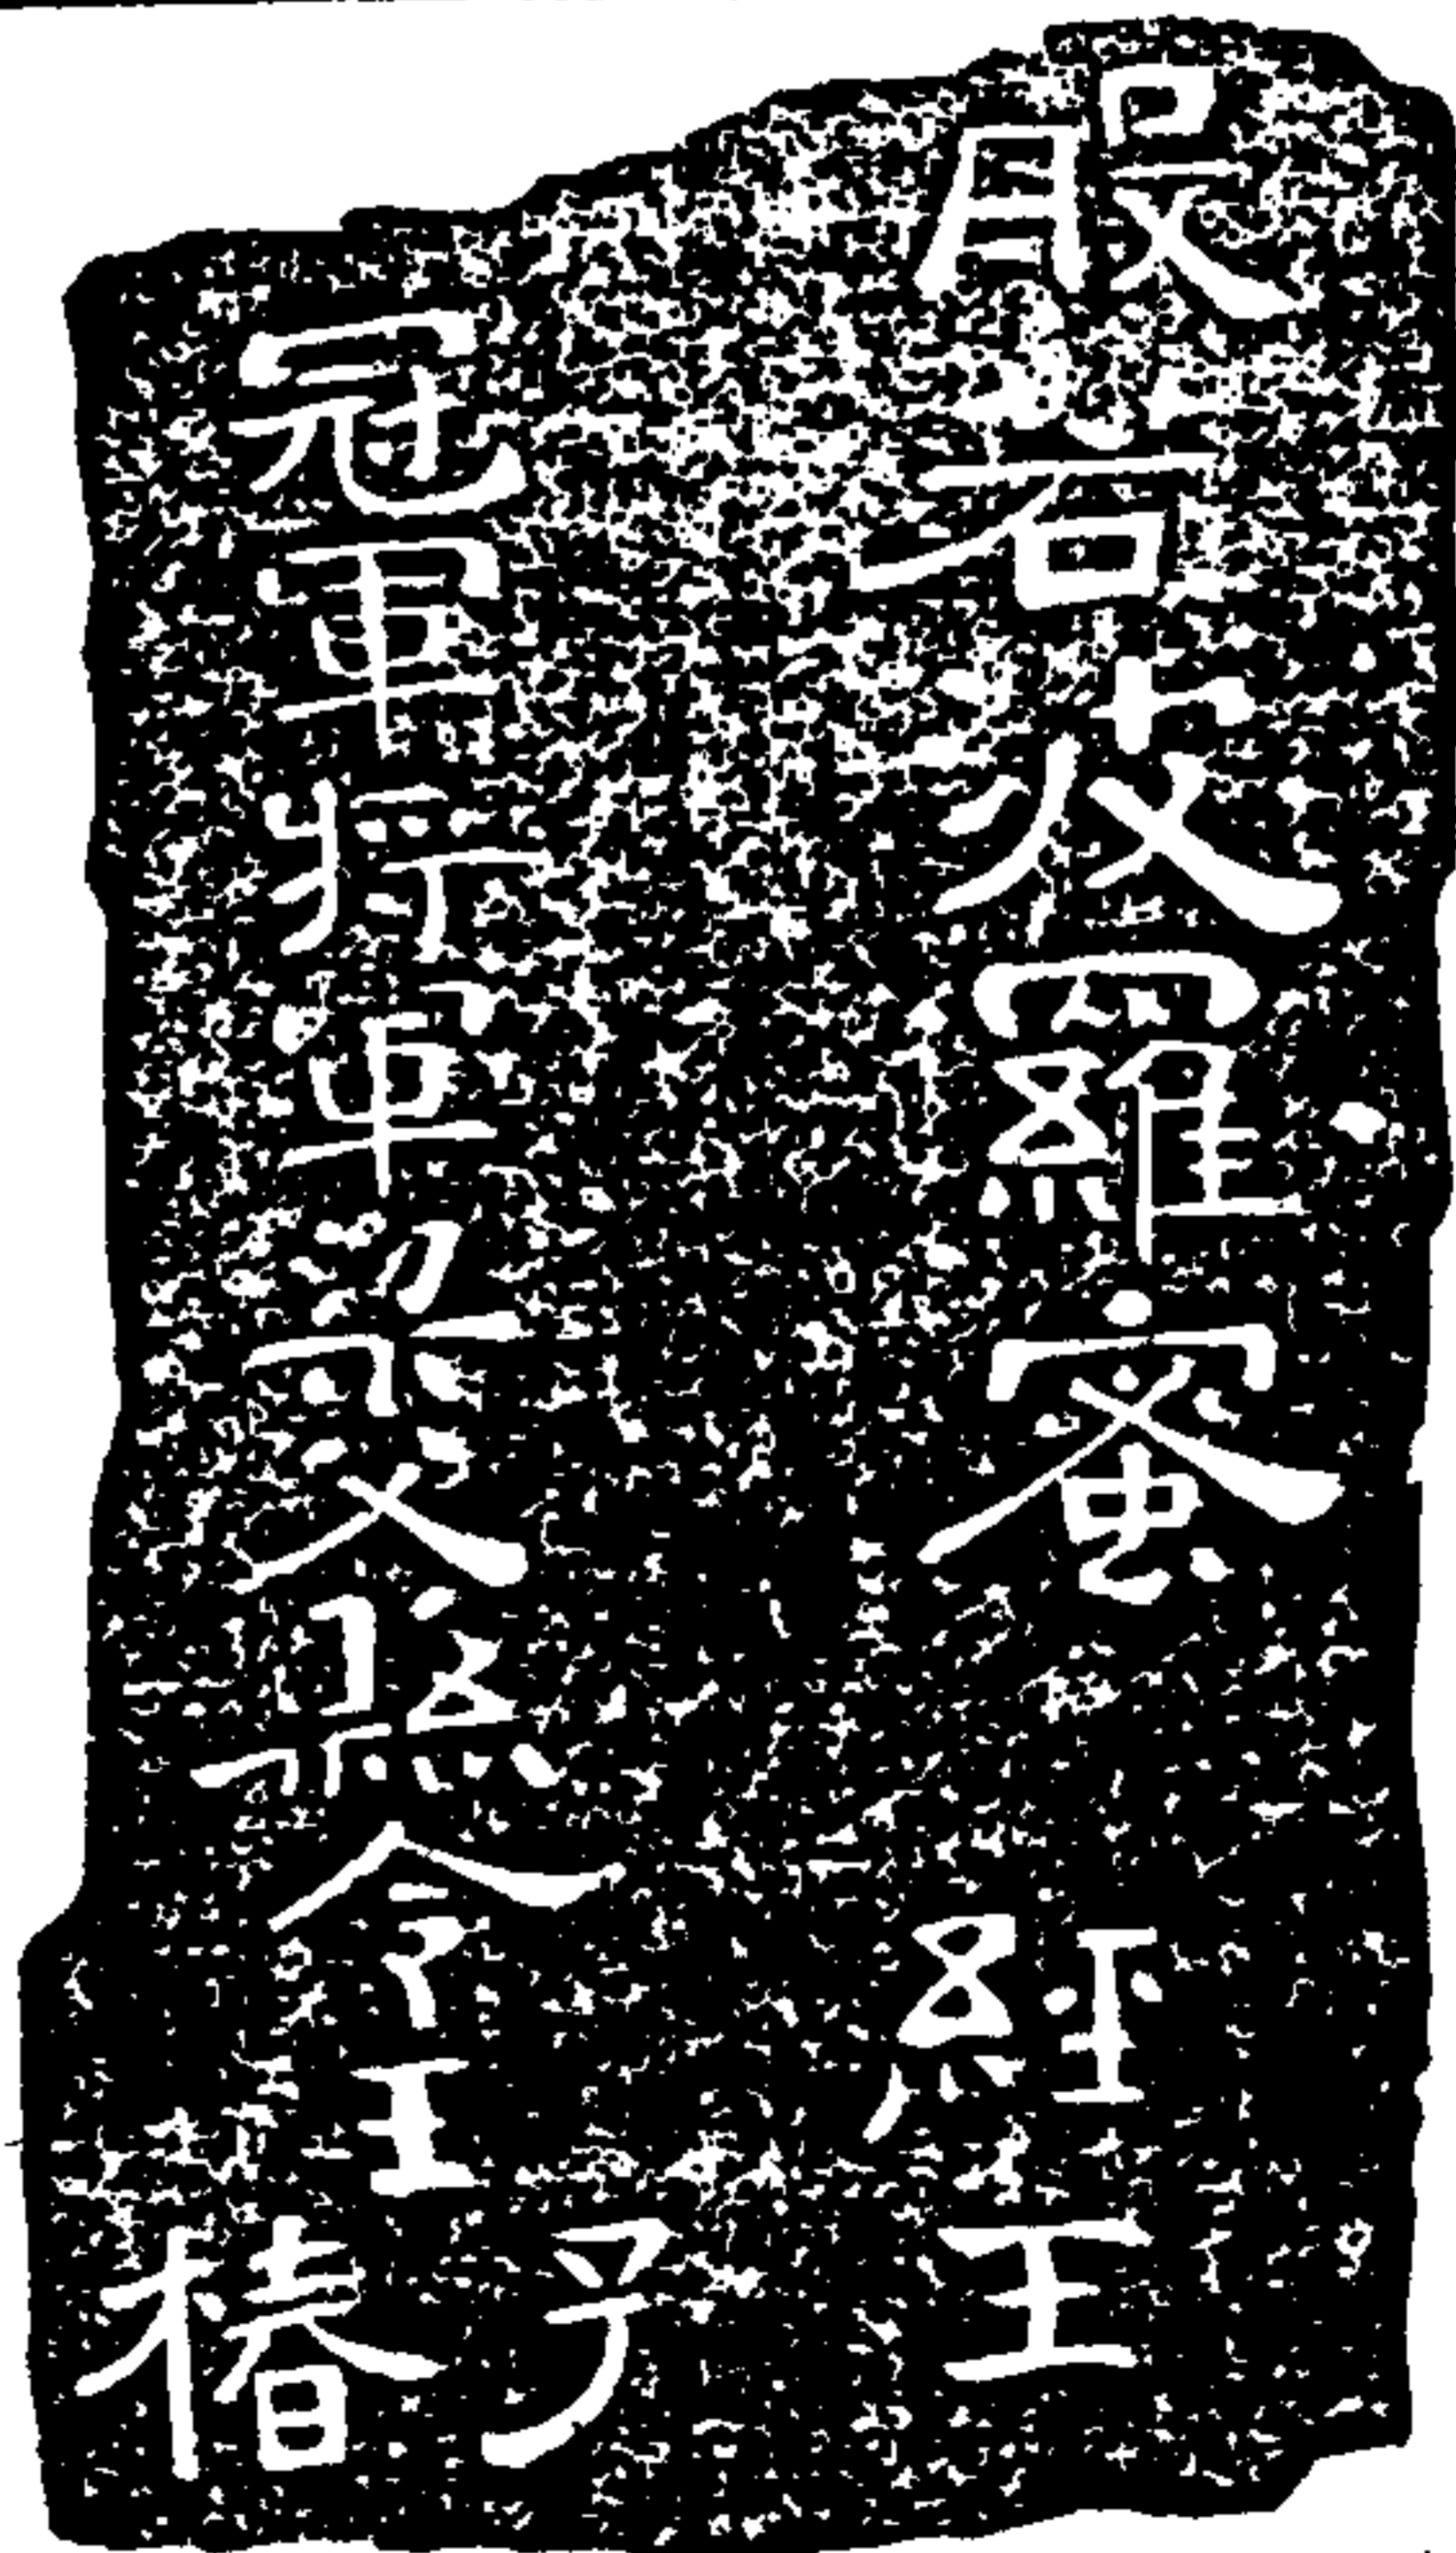 般若波羅蜜經主
冠軍將軍梁父縣令王子椿